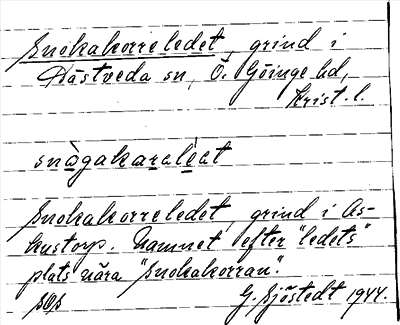 Snokakorreledet, grind i
Hästveda sn, Ö. Göinge hd,
Krist. l.
snògakaraléat
Snokakorreledet, grind i As-
kustorp. Namnet efter "ledets"
plats nära "Snokakorran".
G. Sjöstedt 1944.